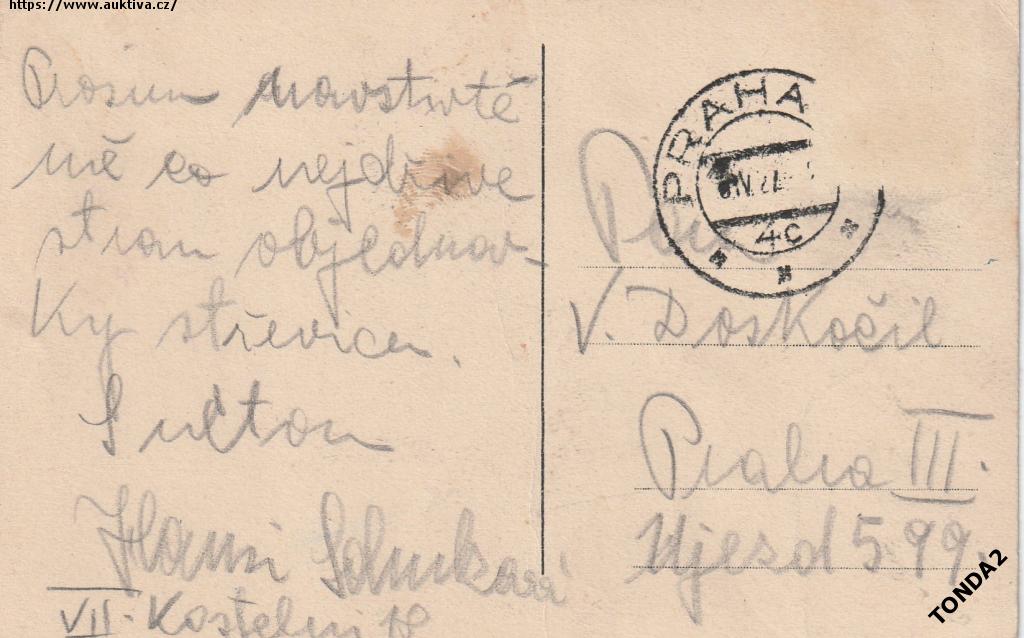 https://www.auktiva.cz/
Prosim navstivtě
mě co nejdřive
stran objednav-
ky střevicu.
S uctou
VII. Kostelni 18
PRAHA
4c
Pan
V. Doskočil
Praha III.
Ujezd 599.
TONDA2